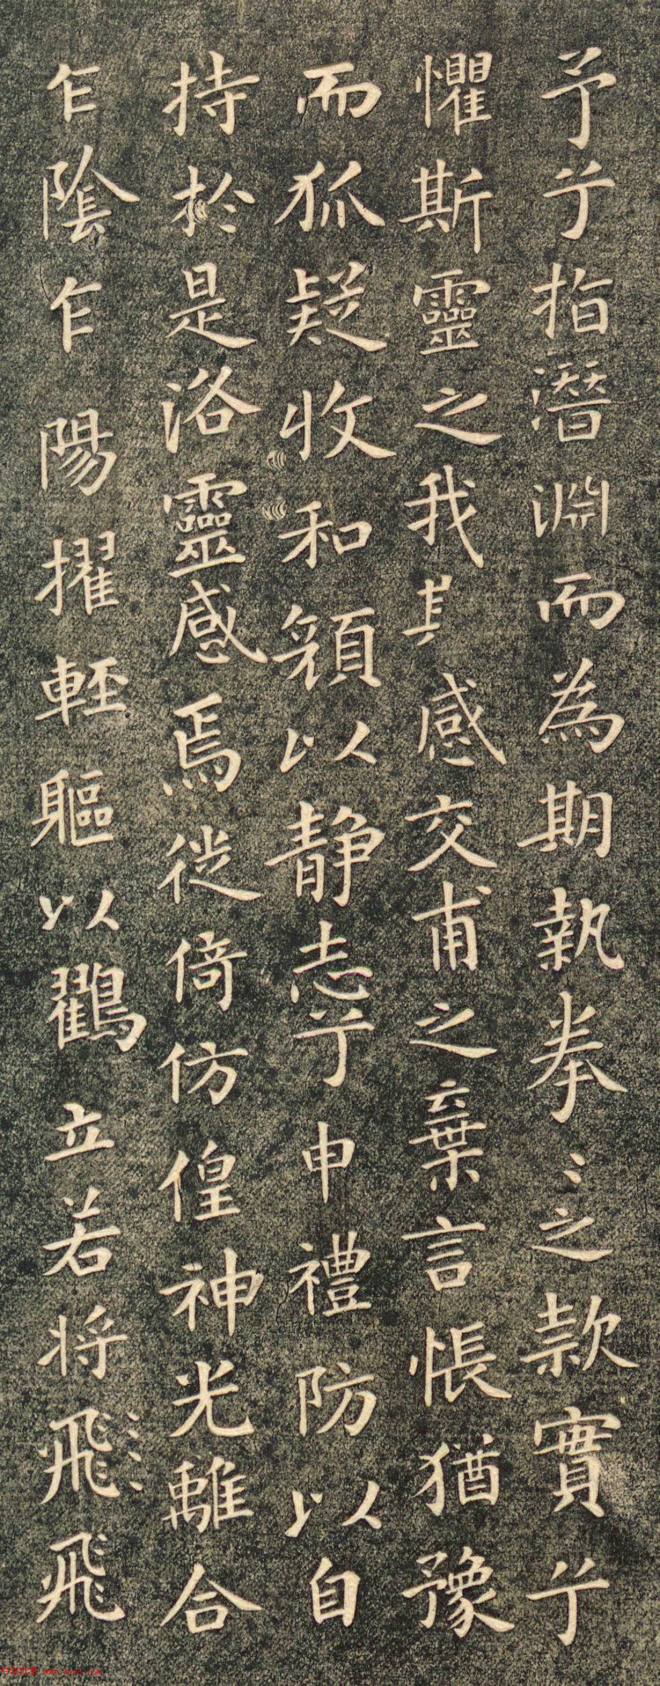 予兮指潛淵而為期執拳〻之款實兮
懼斯靈之我其感交甫之棄言悵猶豫
而狐疑收和顏以靜志兮申禮防以自
持於是洛靈感焉徙倚仿偟神光離合
乍陰乍陽擢輕軀以鸛立若將飛飛